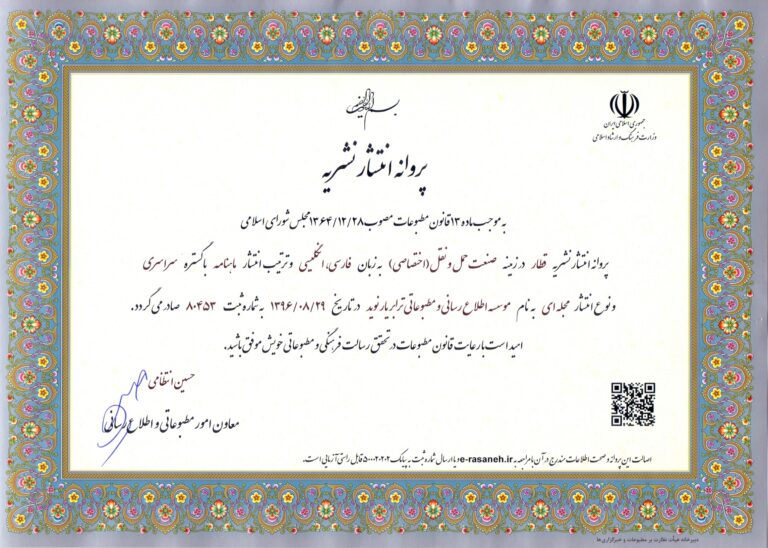 بسم الله الرحمن الرحیم
جمهوری اسلامی ایران
وزارت فرهنگ و ارشاد اسلامی
پروانه انتشار نشریه
به موجب ماده ۱۳ قانون مطبوعات مصوب ۱۳۶۴/۱۲/۲۸ مجلس شورای اسلامی
پروانه انتشار نشریه قطار در زمینه صنعت حمل و نقل (اختصاصی) به زبان فارسی، انگلیسی و ترتیب انتشار ماهنامه با گستره سراسری
و نوع انتشار مجله ای به نام موسسه اطلاع رسانی و مطبوعاتی ترابر یار نوید در تاریخ ۱۳۹۶/۰۸/۲۹ به شماره ثبت ۸۰۴۵۳ صادر می گردد.
امید است با رعایت قانون مطبوعات در تحقق رسالت فرهنگی و مطبوعاتی خویش موفق باشید.
حسین انتظامی
معاون امور مطبوعاتی و اطلاع رسانی
اصالت این پروانه و صحت اطلاعات مندرج در آن با مراجعه به e-rasaneh.ir و یا ارسال شماره ثبت به پیامک ۵۰۰۰۲۰۲۰۲ قابل راستی آزمایی است.
دبیرخانه هیأت نظارت بر مطبوعات و خبرگزاری‌ها